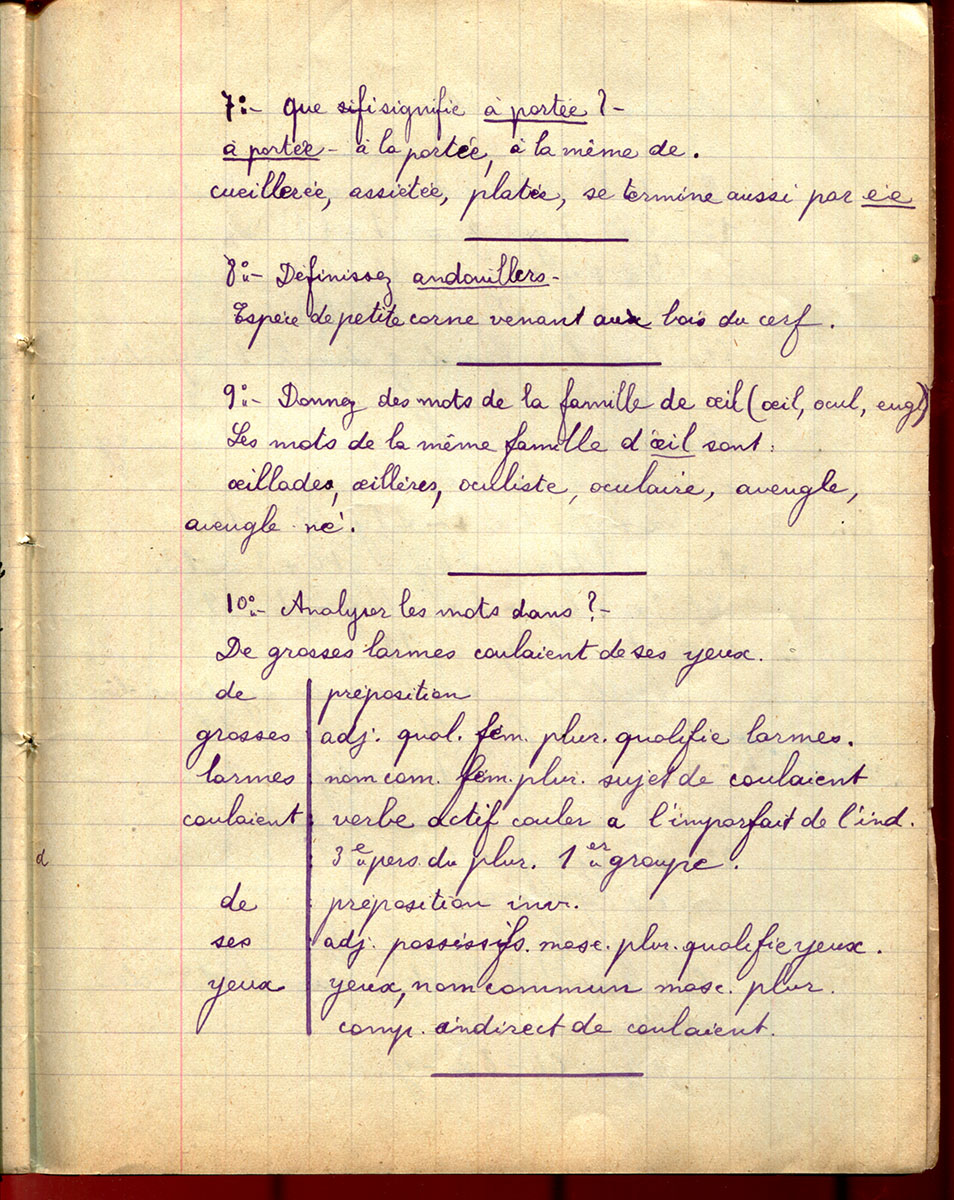 7°:- Que sifisignifie à portée ? -
à portée - à la portée, à la même de.
cueillerée, assiétée, platée, se termine aussi par ée
8°:- Définissez andouillers -
Espèce de petite corne venant aux bois du cerf.
9°:- Donnez des mots de la famille de œil (œil, ocul, eugl)
Les mots de la même famille d'œil sont :
œillades, œillères, oculiste, oculaire, aveugle,
aveugle né.
10°:- Analyser les mots dans ? -
De grosses larmes coulaient de ses yeux.
de préposition
grosses adj. qual. fém. plur. qualifie larmes.
larmes nom com. fém. plur. sujet de coulaient
coulaient verbe actif couler a l'imparfait de l'ind.
3e pers. du plur. 1er groupe.
de préposition inv.
ses adj. possessifs. masc. plur. qualifie yeux.
yeux yeux, nom commun masc. plur.
comp. indirect de coulaient.